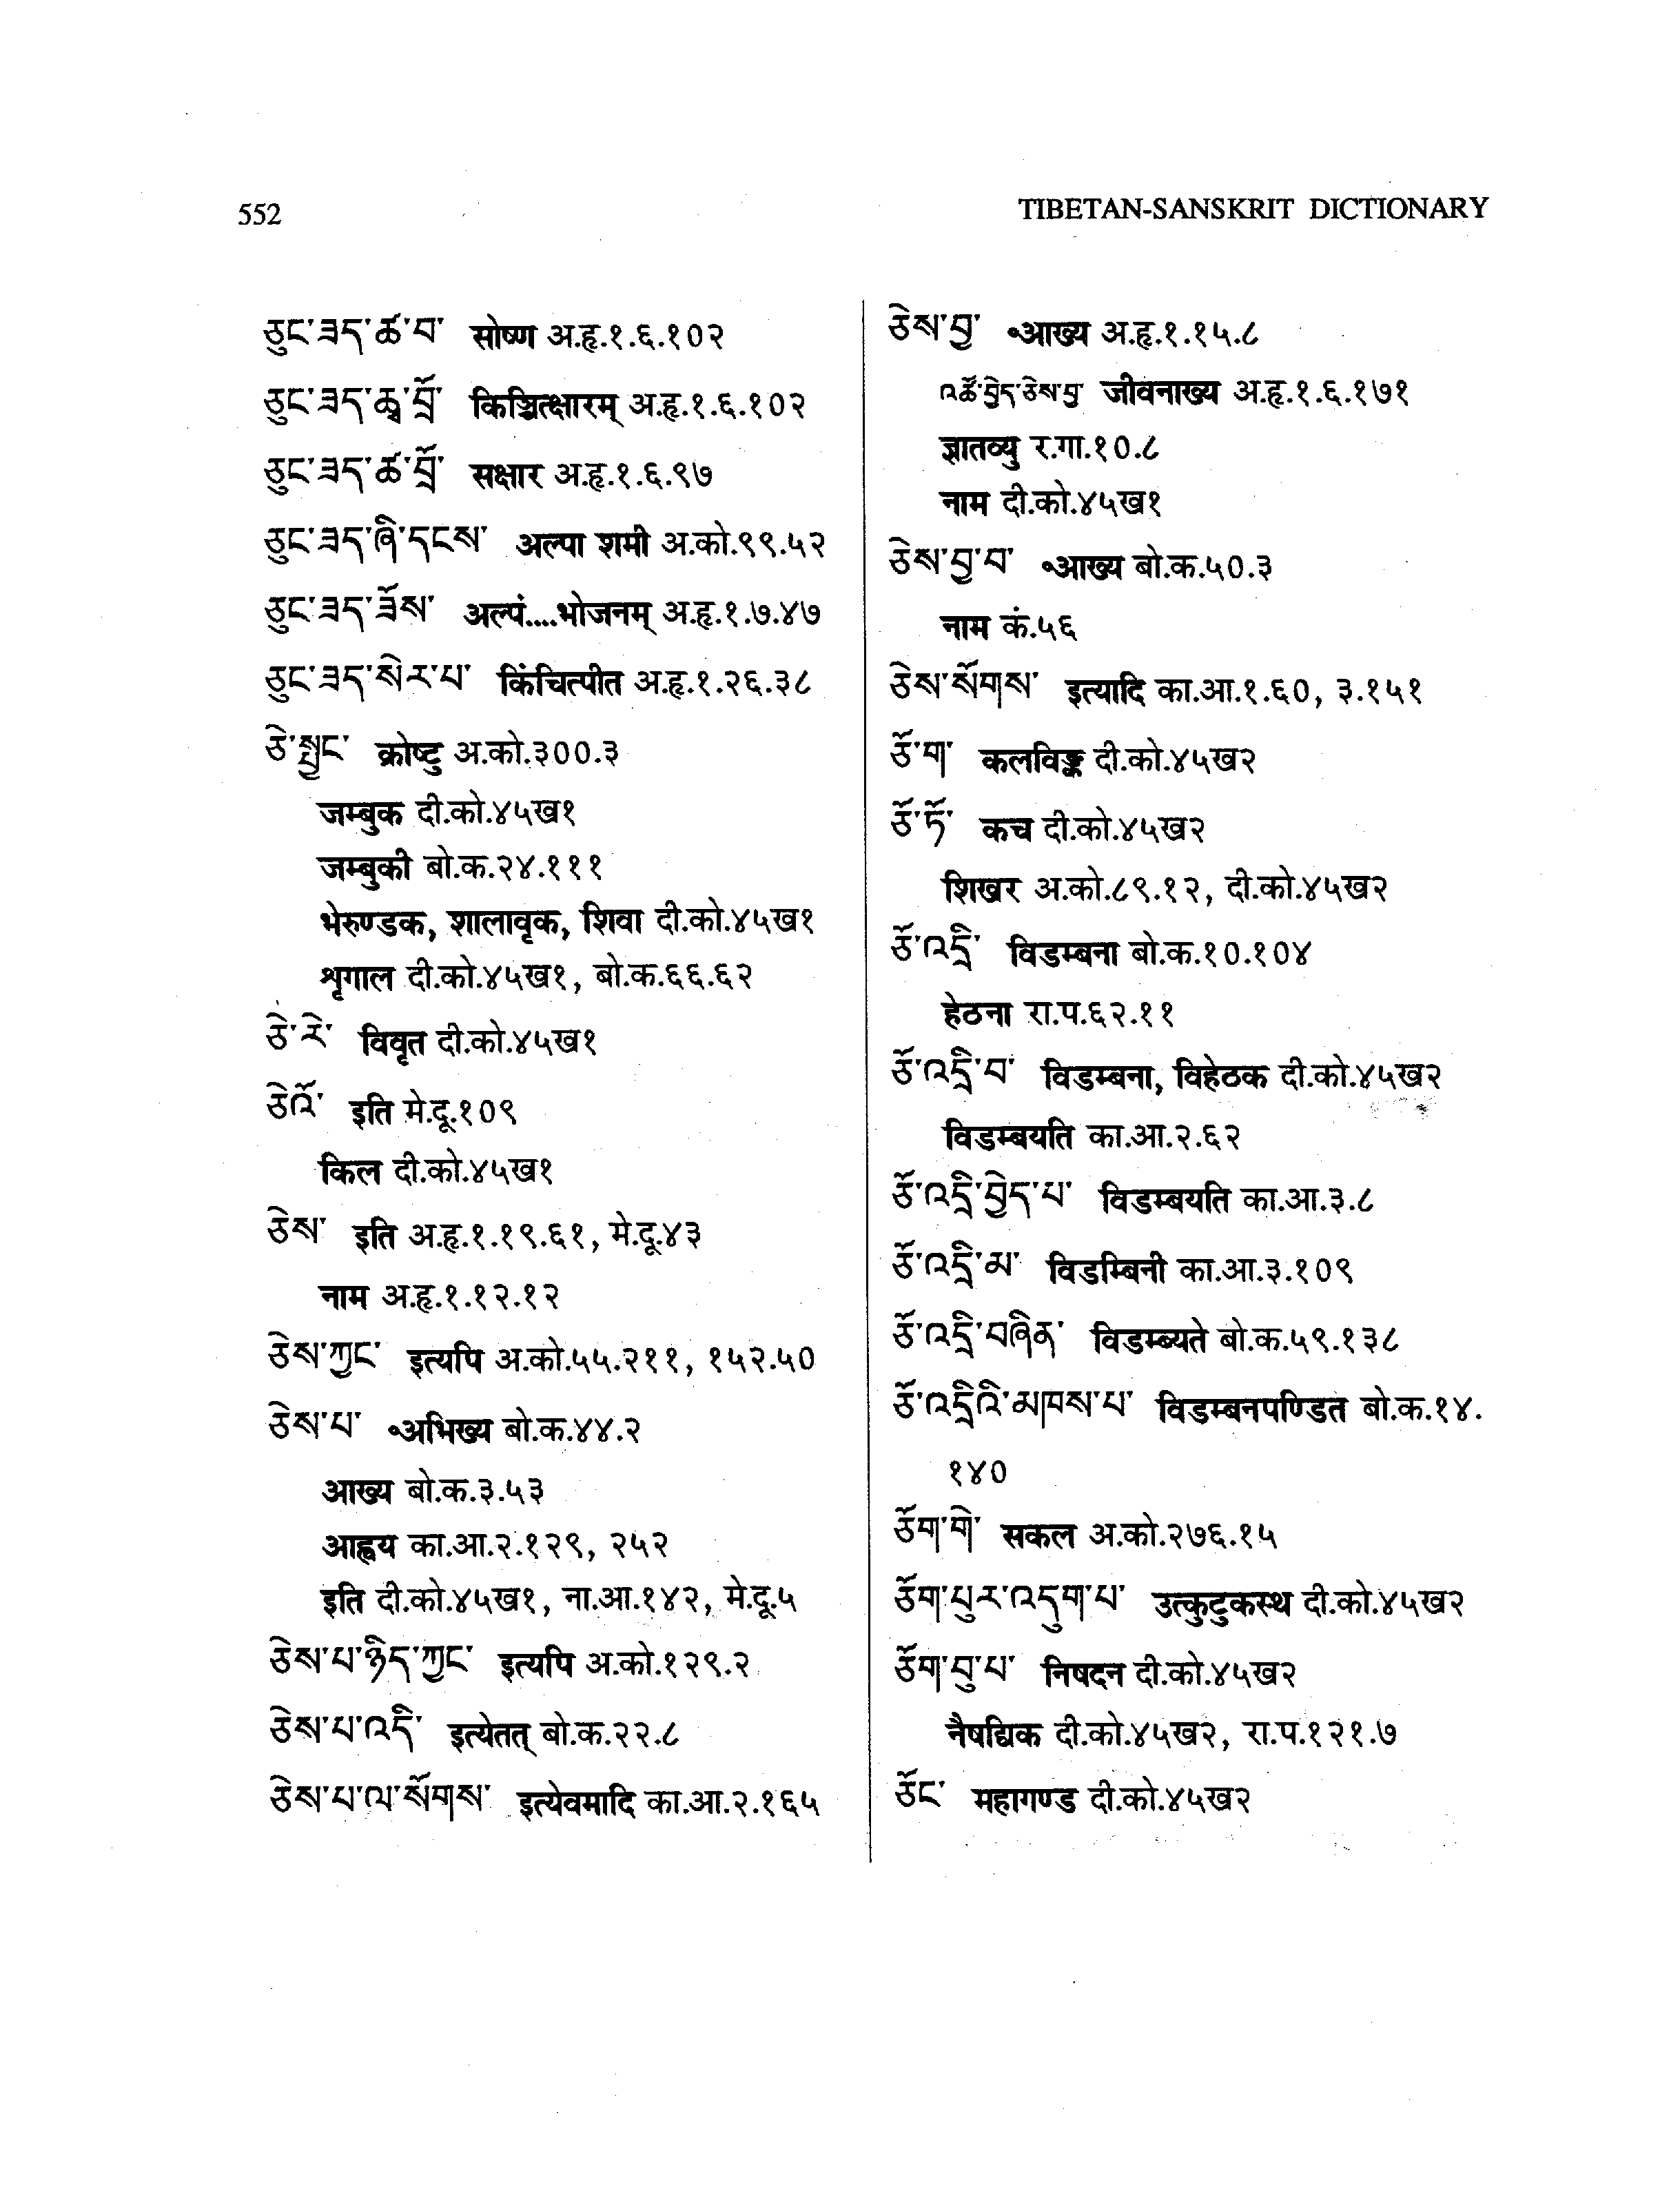 552
TIBETAN-SANSKRIT DICTIONARY
ཅུང་ཟད་ཚ་བ་ सोष्ण अ.हृ.१.६.१०२
ཅུང་ཟད་ཚྭ་བྲོ་ किञ्चित्क्षारम् अ.हृ.१.६.१०२
ཅུང་ཟད་ཚ་བྲོ་ सक्षार अ.हृ.१.६.९७
ཅུང་ཟད་ཞི་དངས་ अल्पा शमी अ.को.९९.५२
ཅུང་ཟད་ཟོས་ अल्पं....भोजनम् अ.हृ.१.७.४७
ཅུང་ཟད་སེར་པ་ किंचित्पीत अ.हृ.१.२६.३८
ཅེ་སྤྱང་ क्रोष्टु अ.को.३००.३
जम्बुक दी.को.४५ख१
जम्बुकी बो.क.२४.१११
भेरुण्डक, शालावृक, शिवा दी.को.४५ख१
शृगाल दी.को.४५ख१, बो.क.६६.६२
ཅེ་རེ་ विवृत दी.को.४५ख१
ཅེའོ་ इति मे.दू.१०९
किल दी.को.४५ख१
ཅེས་ इति अ.हृ.१.१९.६१, मे.दू.४३
नाम अ.हृ.१.१२.१२
ཅེས་ཀྱང་ इत्यपि अ.को.५५.२११, १५२.५०
ཅེས་པ་ ॰अभिख्य बो.क.४४.२
आख्य बो.क.३.५३
आह्वय का.आ.२.१२९, २५२
इति दी.को.४५ख१, ना.आ.१४२, मे.दू.५
ཅེས་པ་ཉིད་ཀྱང་ इत्यपि अ.को.१२९.२
ཅེས་པ་འདི་ इत्येतत् बो.क.२२.८
ཅེས་པ་ལ་སོགས་ इत्येवमादि का.आ.२.१६५
ཅེས་བྱ་ ॰आख्य अ.हृ.१.१५.८
འཚོ་བྱེད་ཅེས་བྱ་ जीवनाख्य अ.हृ.१.६.१७१
ज्ञातव्यु र.गा.१०.८
नाम दी.को.४५ख१
ཅེས་བྱ་བ་ ॰आख्य बो.क.५०.३
नाम कं.५६
ཅེས་སོགས་ इत्यादि का.आ.१.६०, ३.१५१
ཅོ་ག་ कलविङ्क दी.को.४५ख२
ཅོ་ཏོ་ कच दी.को.४५ख२
शिखर अ.को.८९.१२, दी.को.४५ख२
ཅོ་འདྲི་ विडम्बना बो.क.१०.१०४
हेठना रा.प.६२.११
ཅོ་འདྲི་བ་ विडम्बना, विहेठक दी.को.४५ख२
विडम्बयति का.आ.२.६२
ཅོ་འདྲི་བྱེད་པ་ विडम्बयति का.आ.३.८
ཅོ་འདྲི་མ་ विडम्बिनी का.आ.३.१०९
ཅོ་འདྲི་བཞིན་ विडम्ब्यते बो.क.५९.१३८
ཅོ་འདྲིའི་མཁས་པ་ विडम्बनपण्डित बो.क.१४.
१४०
ཅོག་གེ་ सकल अ.को.२७६.१५
ཅོག་པུར་འདུག་པ་ उत्कुटुकस्थ दी.को.४५ख२
ཅོག་བུ་པ་ निषदन दी.को.४५ख२
नैषद्यिक दी.को.४५ख२, रा.प.१२१.७
ཅོང་ महागण्ड दी.को.४५ख२